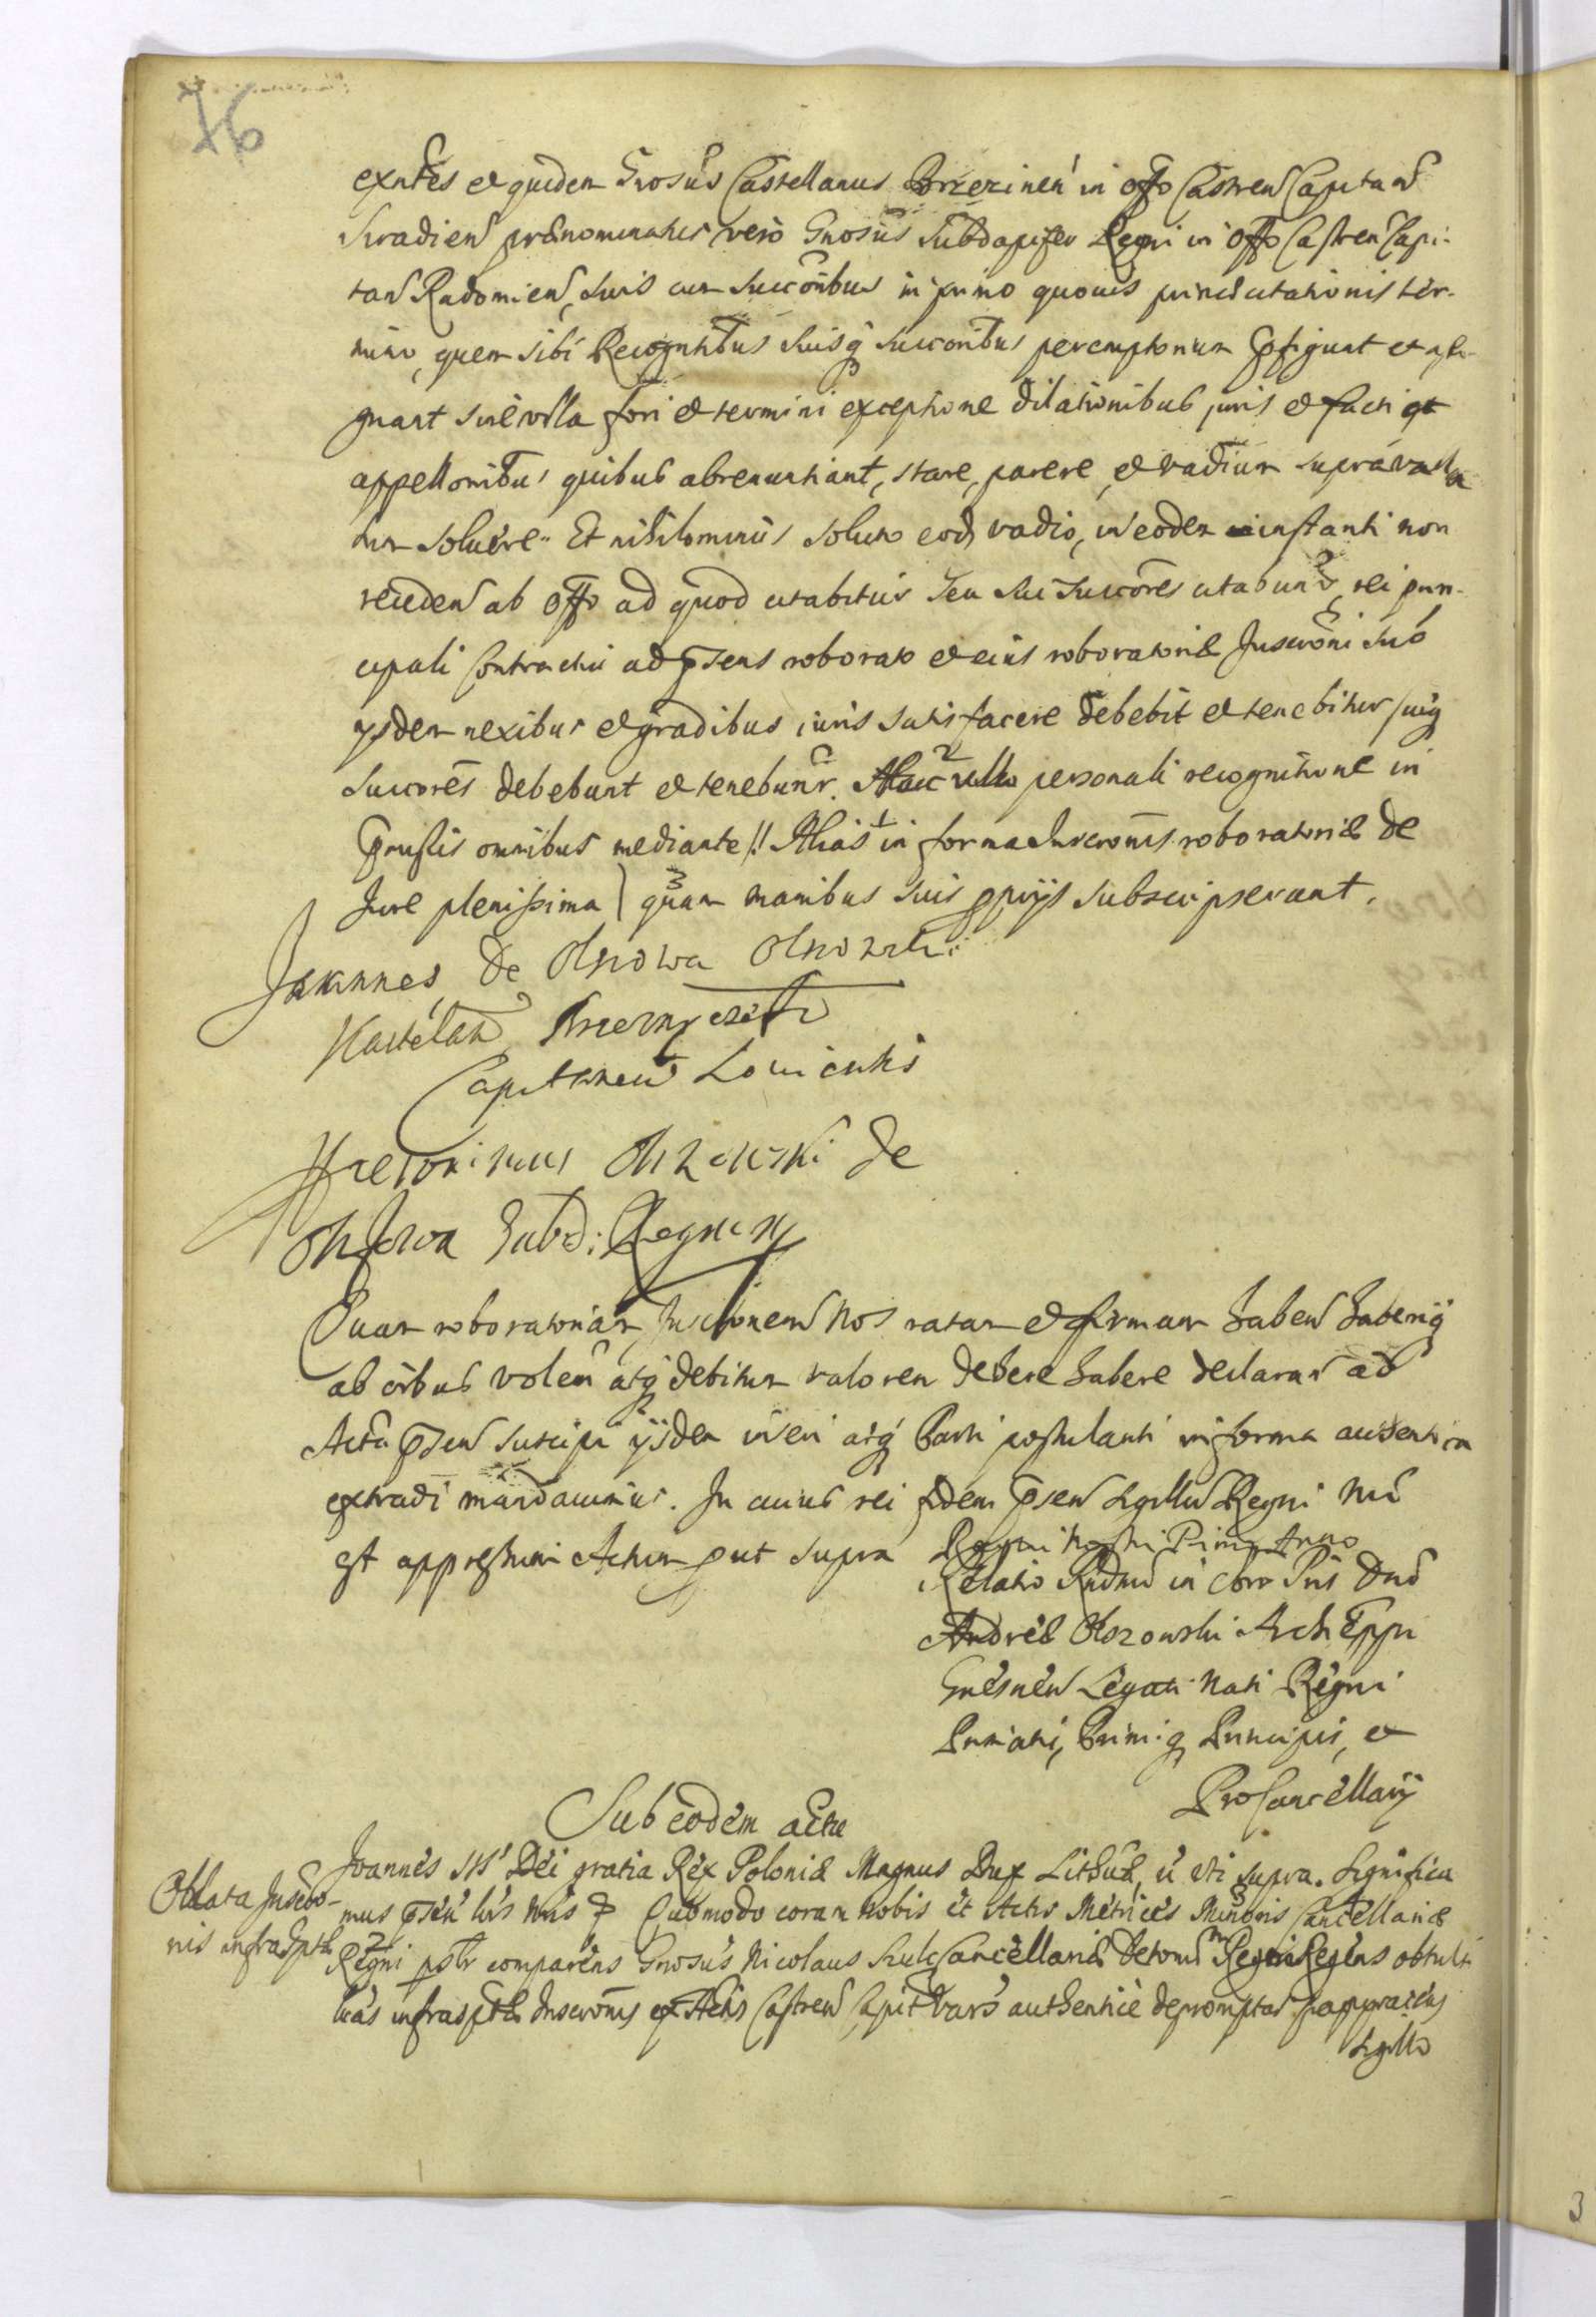 76
exn̄tes et quidem Gnosus Castellanus Brzezinen in offo Castren Capitan
Siradien prænominatus vero Gnosus Subdapifer Regni in offo Castren Capi-
tan Radomien, suis cum succoribus in primo quovis primæ citationis ter-
mino, quem sibi Recogntibus suisq succoribus peremptorium pfigunt et assi-
gnant sine vlla fori et termini exceptione dilationibus juris et facti et
appellonibus quibus abrenuntiant, stare, parere, et vadium supra valla
tum soluere. Et nihilominus soluto eod vadio, in eodem instanti non
receden ab offo ad quod citabitur seu sui succores citabunr, rei prin-
cipali Contractui ad psens roborato et eius roboratoriæ Inscroni suo
ysdem nexibus et gradibus iuris satisfacere debebit et tenebitur suiq
succores debebunt et tenebunr. Hac personali recognitione in
pmissis omnibus mediante // Alias in forma Inscronis roboratoriæ de
Jure plenissima) quam manibus suis ppriis subscripserunt.
Joannes de Olszowa Olszowski
Kasztelan Brzezinski
Capitaneus
Hieronimus Olszowski de
Olszowa Subd: Regni
Quam roboratoriam Inscronem Nos ratam et firmam haben haberiq
ab oibus volen atq debitum valorem debere habere declaran ad
Acta psen suscipi ysdem inseri atq Parti postulanti in forma authentica
extradi mandauimus. In cuius rei fidem psen Sigillu Regni nri
est appressum Actum put supra Regni Nostri Primo Anno
Relatio Rndmi in Chro Pris Dni
Andreæ Olszowski Archi Eppi
Gnesnen Legati Nati Regni
Primatis, Primiq Principis, et
ProCancellarij
Sub eodem actu
Joannes III Dei gratia Rex Poloniæ Magnus Dux Lithuæ, ut uti supra. Significa
Oblata Inscro-
nis infrascptæ
mus psen lris nris Quomodo coram nobis et Actis Metrices Minoris Cancellariæ
Regni pslr comparens Gnosus Nicolaus Cancellariæ Regni Regens obtulit
infrascptæ Inscronis ex Actis Castren Capit Vars authentice depromptas
Sigillo
3